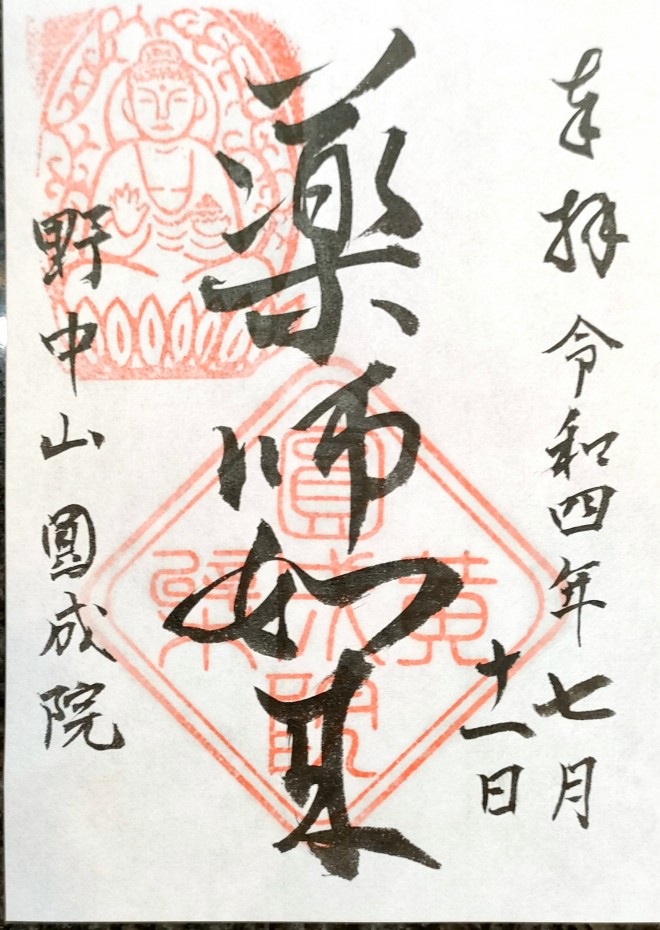 奉拝 令和四年七月
十一日
薬師如来
野中山 圓成院
黄檗
圓成院